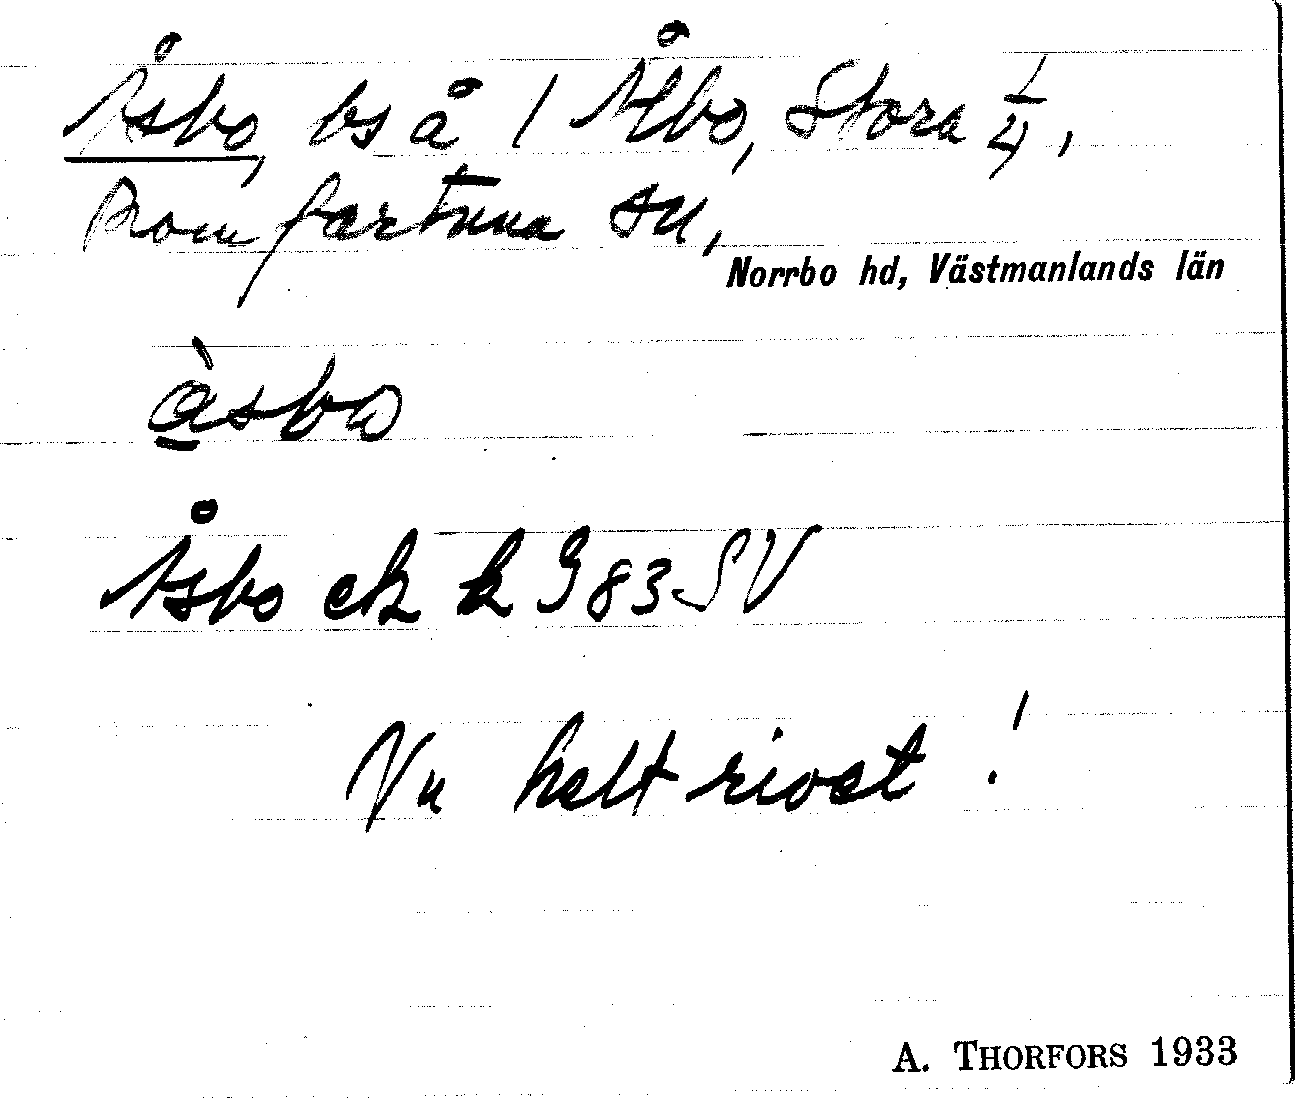 Åsbo, bs å 1 Åbo, Stora 1/4,
Romfartuna sn,
Norrbo hd, Västmanlands län
àsbo
Åsbo ek k J 83 SV
Nu helt rivet !
A. THORFORS 1933